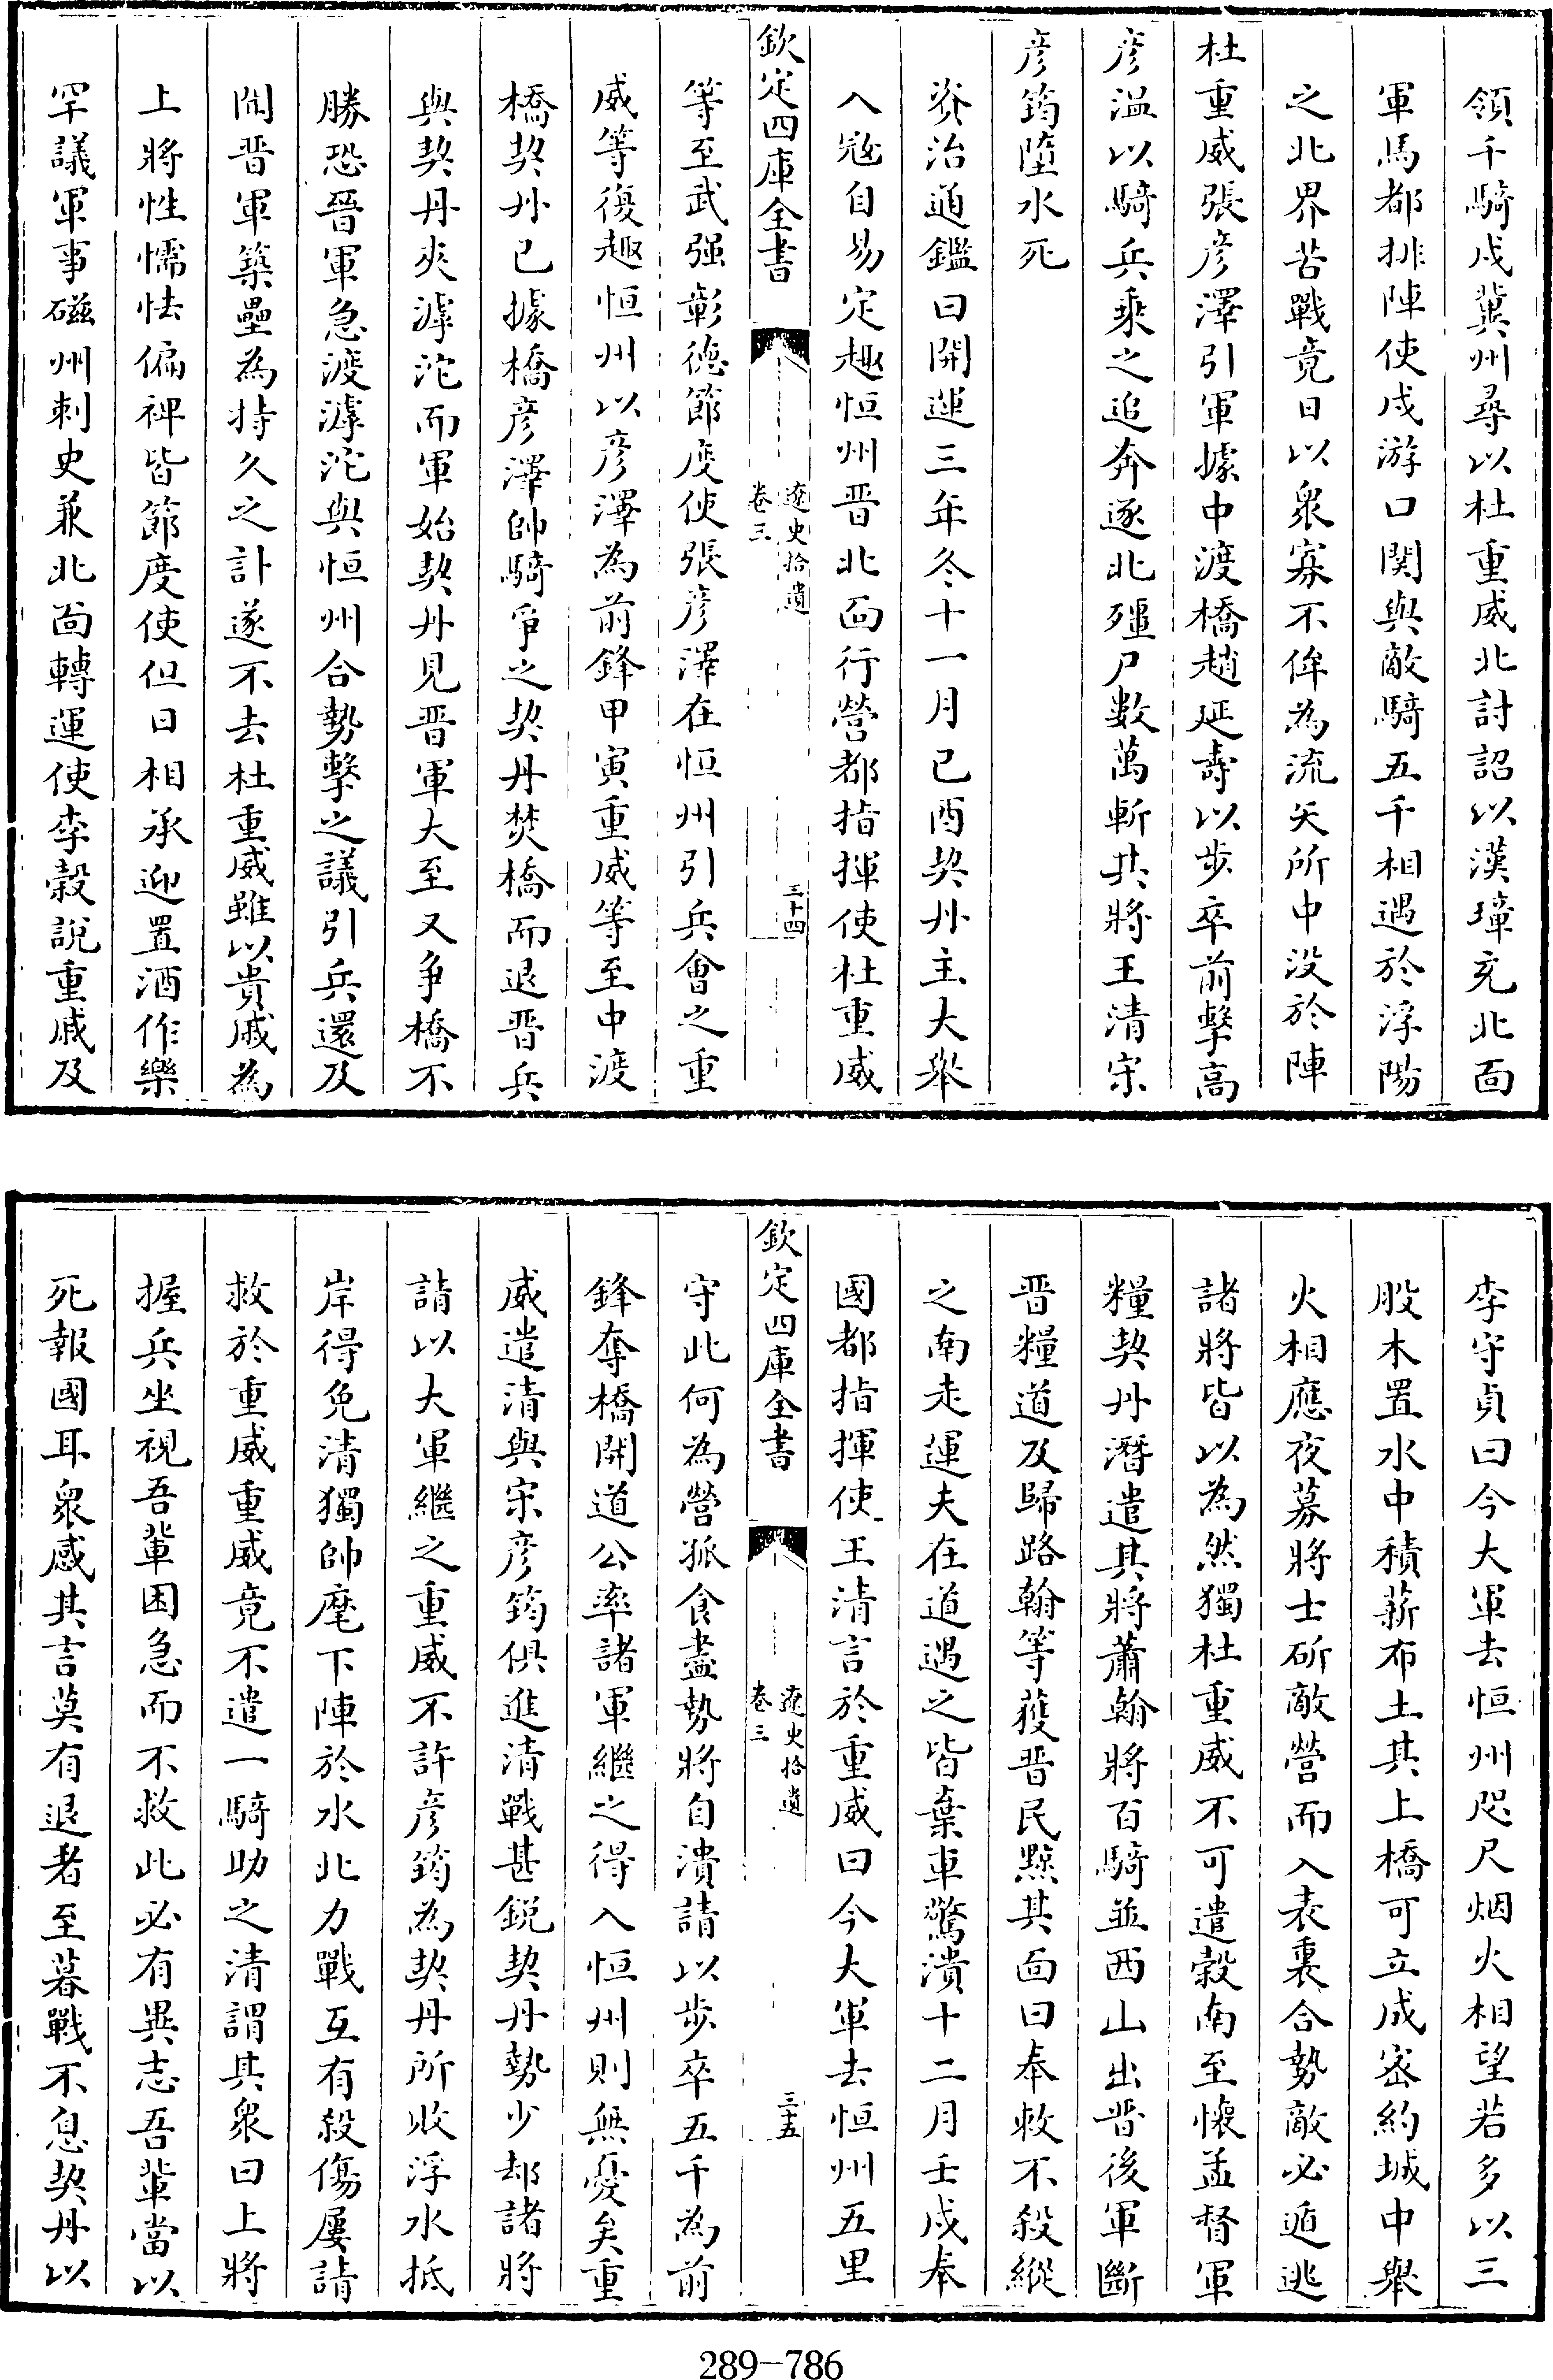 領千騎戍冀州尋以杜重威北討詔以漢璋充北面
軍馬都排陣使戍游口關與敵騎五千相遇於浮陽
之北界苦戰竟日以衆寡不侔為流矢所中没於陣
杜重威張彦澤引軍據中渡橋趙延壽以步卒前擊高
彦温以騎兵乘之追奔逐北殭尸數萬斬其將王清宋
彦筠墮水死
資治通鑑曰開運三年冬十一月已酉契丹主大舉
入冦自易定趣恒州晋北面行營都指揮使杜重威
欽定四庫全書
遼史拾遺
卷三
三十四
等至武强彰德節度使張彦澤在恒州引兵會之重
威等復趣恒州以彦澤為前鋒甲寅重威等至中渡
橋契丹已據橋彦澤帥騎爭之契丹焚橋而退晋兵
與契丹夾滹沱而軍始契丹見晋軍大至又争橋不
勝恐晉軍急渡滹沱與恒州合勢擊之議引兵還及
聞晋軍築壘為持久之計遂不去杜重威雖以貴戚為
上將性懦怯偏裨皆節度使但日相承迎置酒作樂
罕議軍事磁州刺史兼北面轉運使李穀說重威及
李守貞曰今大軍去恒州咫尺烟火相望若多以三
股木置水中積薪布土其上橋可立成宻約城中舉
火相應夜募將士斫敵營而入表裏合勢敵必遁逃
諸將皆以為然獨杜重威不可遣穀南至懷孟督軍
糧契丹潛遣其將蕭翰將百騎並西山出晋後軍斷
晋糧道及歸路翰等獲晋民黥其面曰奉敕不殺縱
之南走運夫在道遇之皆棄車驚潰十二月壬戍奉
國都指揮使王清言於重威曰今大軍去恒州五里
欽定四庫全書
遼史拾遺
卷三
三十五
守此何為營孤食盡勢將自潰請以步卒五千為前
鋒奪橋開道公率諸軍繼之得入恒州則無憂矣重
威遣清與宋彦筠俱進清戰甚鋭契丹勢少却諸將
請以大軍繼之重威不許彦筠為契丹所敗浮水抵
岸得免清獨帥麾下陣於水北力戰互有殺傷屢請
救於重威重威竟不遣一騎助之清謂其衆曰上將
握兵坐視吾輩困急而不救此必有異志吾輩當以
死報國耳衆感其言莫有退者至暮戰不息契丹以
289-786